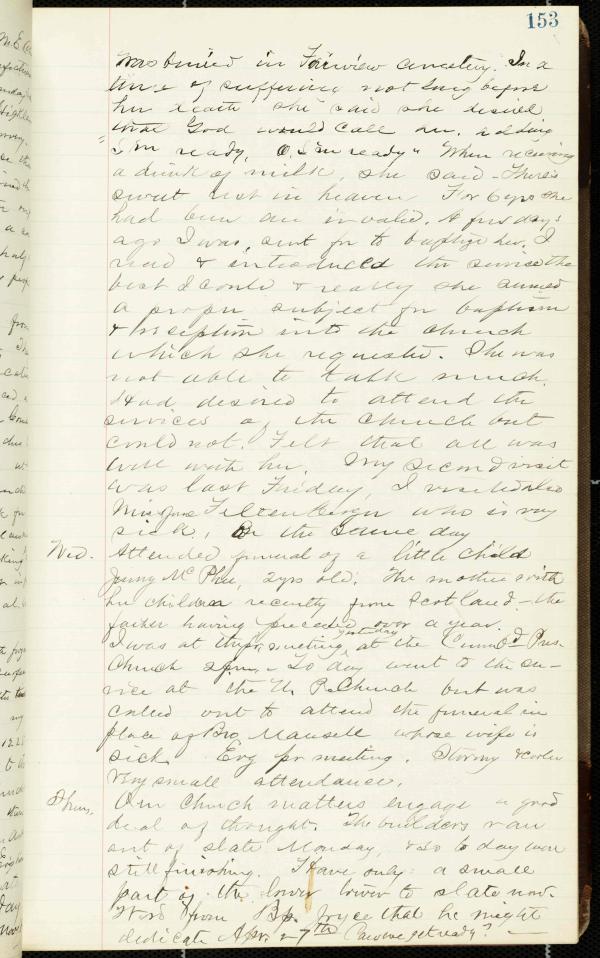 153
was buried in Fairview cemetery. In a
time of suffering not long before
her death she said she desired
that God would call her, adding
"I'm ready, O, I'm ready" When receiving
a drink of milk, she said - There's
sweet rest in heaven For 6 yrs she
had been an invalid. A few days
ago I was sent for to baptize her. I
read & introduced the service the
best I could & really she seemed
a proper subject for baptism
& reception into the church
which she requested. She was
not able to talk much.
Had desired to attend the
services of the church but
could not. Felt that all was
well with her. My second visit
was last Friday, I visited also
Miss who is very
sick, on the same day
Wed. Attended funeral of a little child
Jenny McPhee, 2 yrs old. The mother with
her children recently from Scotland - the
father having preceded over a year.
I was at the pr. meeting yesterday at the Cumbd Pres.
Church 2 p.m. - To day went to the ser-
vice at the U. P. Church but was
called out to attend the funeral in
place of Bro. Mansell whose wife is
sick Evg pr meeting. Stormy & colder
Very small attendance.
Thurs. Our church matters engage a good
deal of thought. The builders ran
out of slate Monday, & so to day were
still finishing. Have only a small
part of the lower tower to slate now.
Word from Bp. Joyce that he might
dedicate Apr. 27th Can we get ready? -